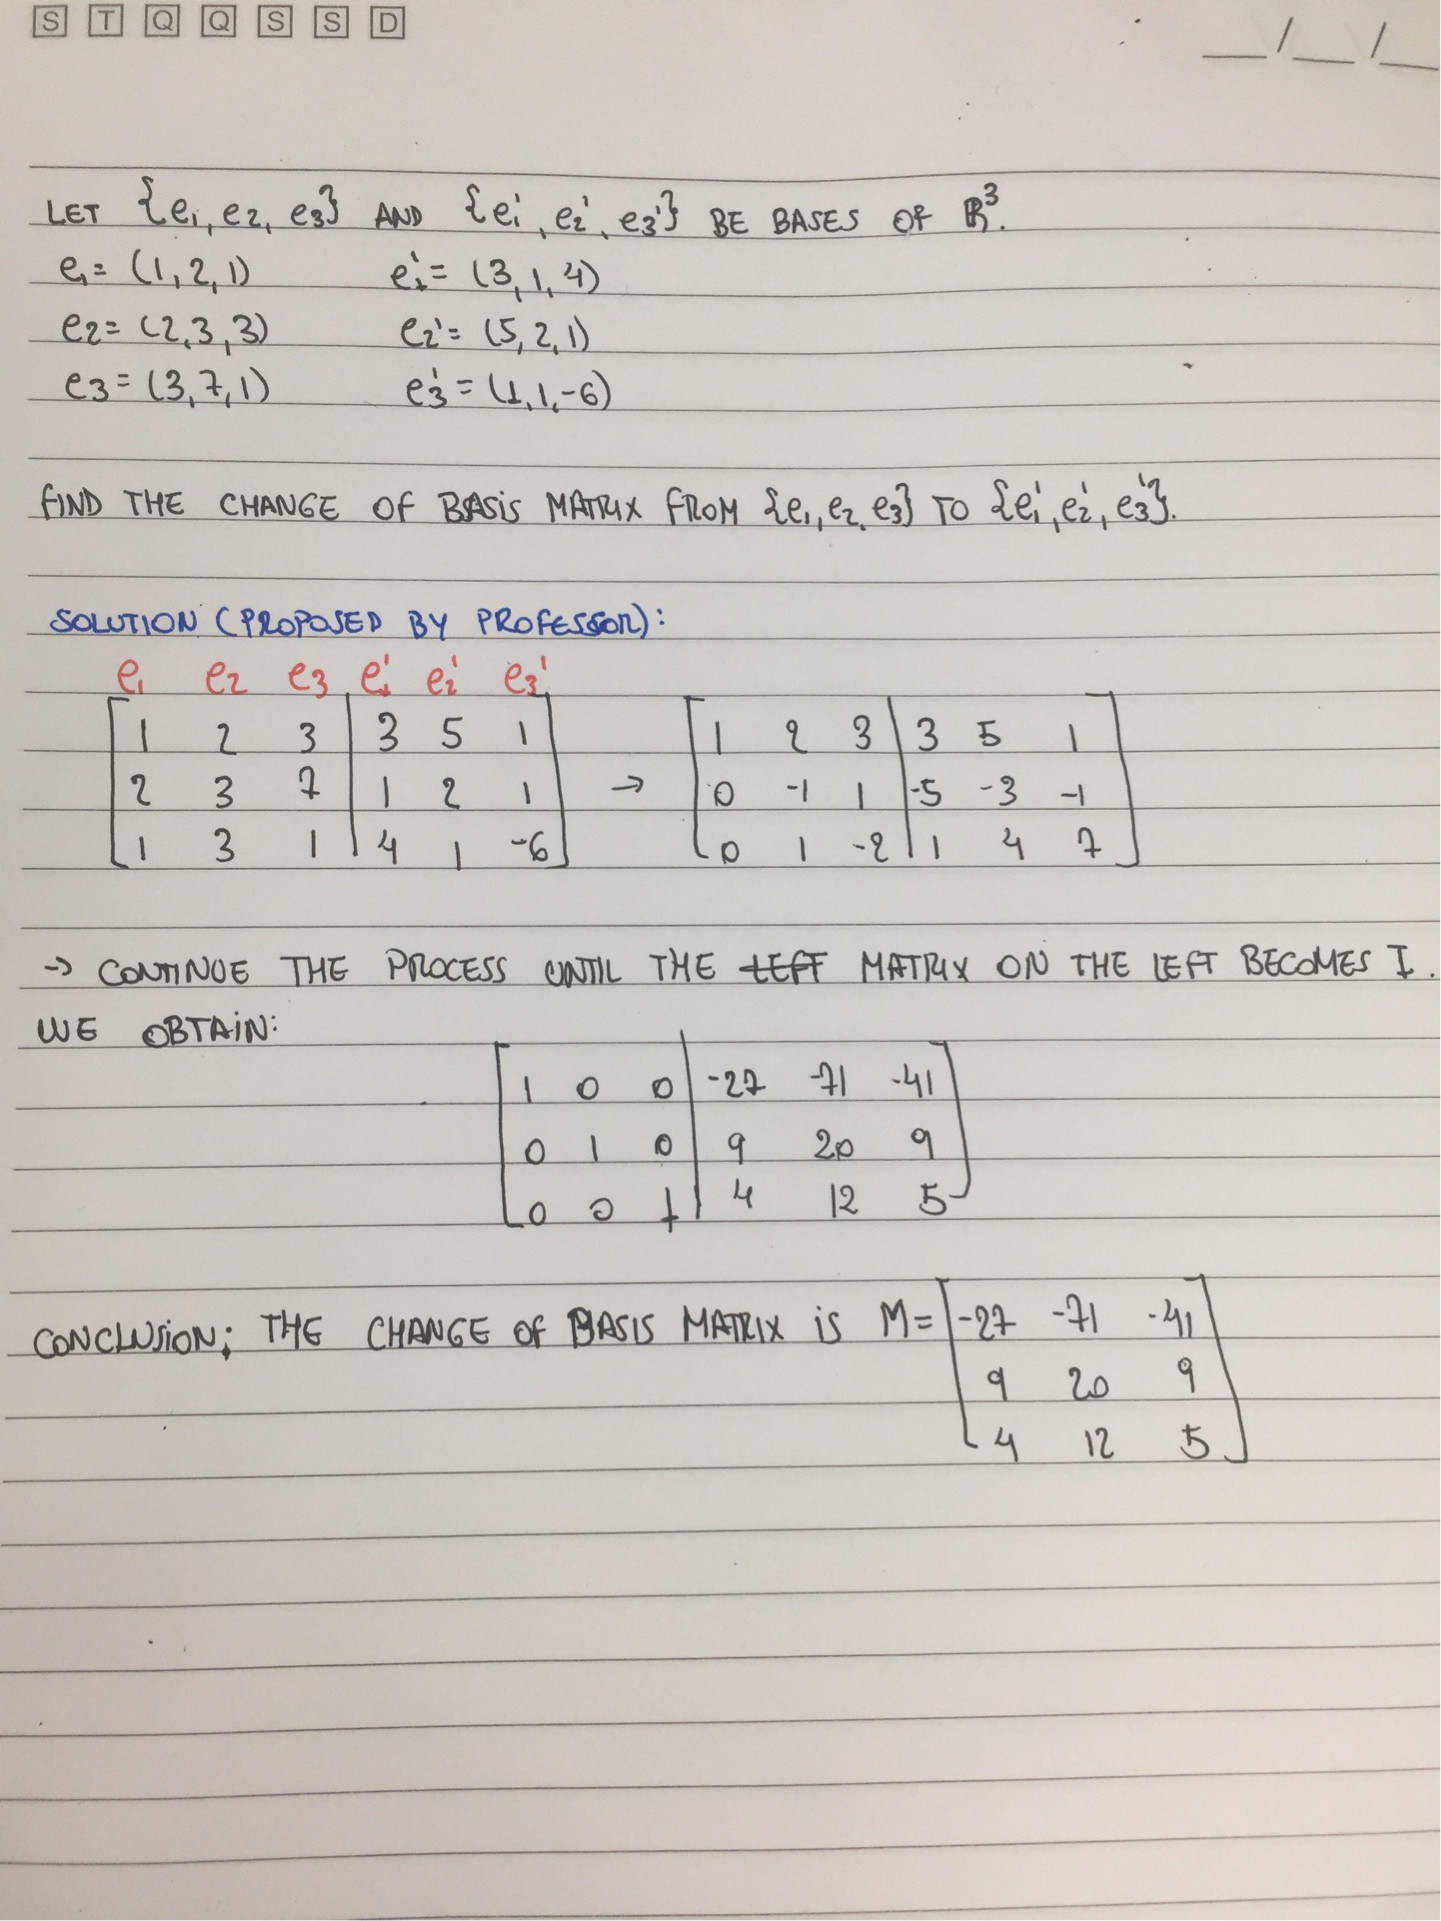 S T Q Q S S D
__/__/__
LET {e1, e2, e3} AND {e1', e2', e3'} BE BASES OF ℝ³.
e1 = (1, 2, 1) e1' = (3, 1, 4)
e2 = (2, 3, 3) e2' = (5, 2, 1)
e3 = (3, 7, 1) e3' = (1, 1, -6)
FIND THE CHANGE OF BASIS MATRIX FROM {e1, e2, e3} TO {e1', e2', e3'}.
SOLUTION (PROPOSED BY PROFESSOR):
e1 e2 e3 e1' e2' e3'
1 2 3 | 3 5 1 → 1 2 3 | 3 5 1
2 3 7 | 1 2 1 0 -1 1 | -5 -3 -1
1 3 1 | 4 1 -6 0 1 -2 | 1 4 7
→ CONTINUE THE PROCESS UNTIL THE LEFT MATRIX ON THE LEFT BECOMES I.
WE OBTAIN:
1 0 0 | -27 -71 -41
0 1 0 | 9 20 9
0 0 1 | 4 12 5
CONCLUSION: THE CHANGE OF BASIS MATRIX IS M = -27 -71 -41
9 20 9
4 12 5